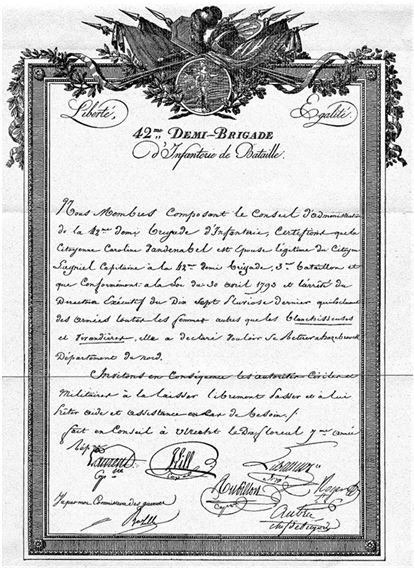 Liberté,
Egalité.
42me DEMI-BRIGADE
d'Infanterie de Bataille.
Nous Membres Composant le Conseil d'administration
de la 42me demi Brigade d'Infanterie, Certifions que la
Citoyenne Caroline Vandenabel est Epouse légitime du Citoyen
Capitaine à la 42me demi Brigade, 3me Bataillon et
que Conformément à la Loi du 30 avril 1793 et l'arrêté du
Directoire Exécutif du Dix Sept Niviose Dernier qui
des armées toutes les femmes autres que les Blanchisseuses
et Vivandieres, elle a déclaré vouloir se Retirer a hazebrouck
Département du nord.
Invitons en Conséquence les autorités Civiles et
Militaires à la laisser librement Passer et à lui
Prêter aide et assistance en Cas de besoin /
fait en Conseil à utrecht le floreal 7me année
Rép
Laurent
Hill